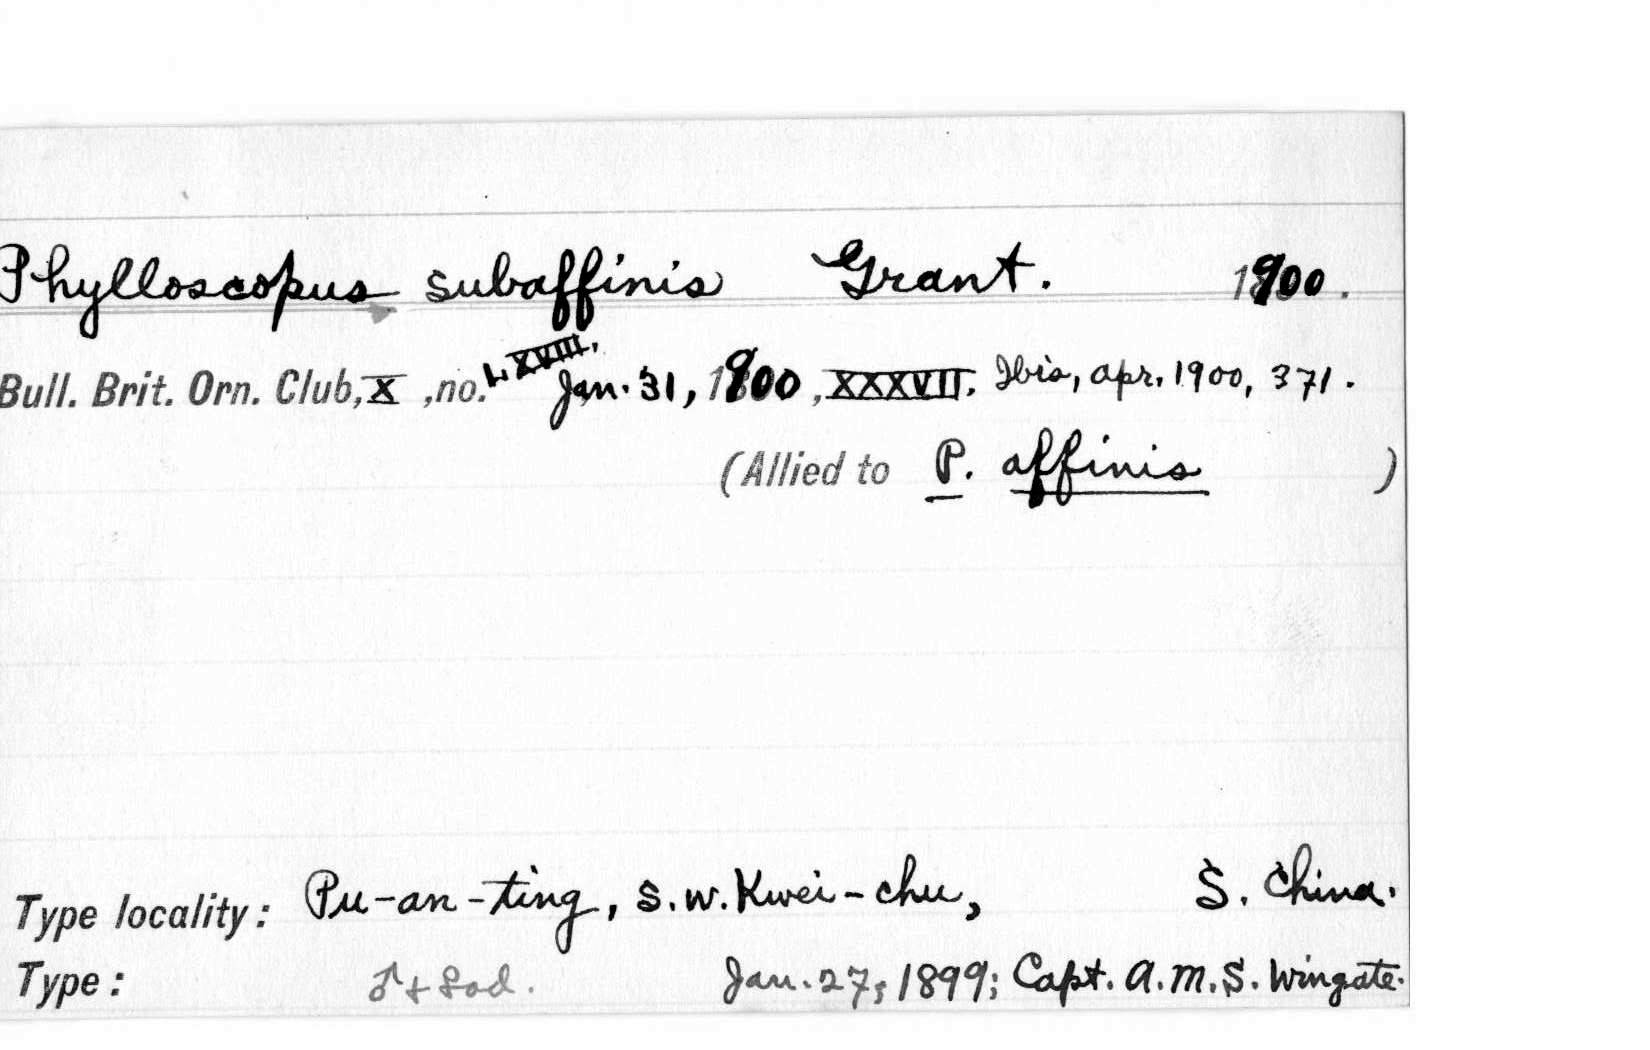 Phylloscopus subaffinis Grant. 1900.
Bull. Brit. Orn. Club, X, no. LXVIII. Jan. 31, 1900, XXXVII. Ibis, Apr. 1900, 371.
(Allied to P. affinis )
Type locality: Pu-an-ting, S.W. Kwei-chu, S. China.
Type: ♂ + ♀ ad. Jan. 27, 1899; Capt. A.M.S. Wingate.